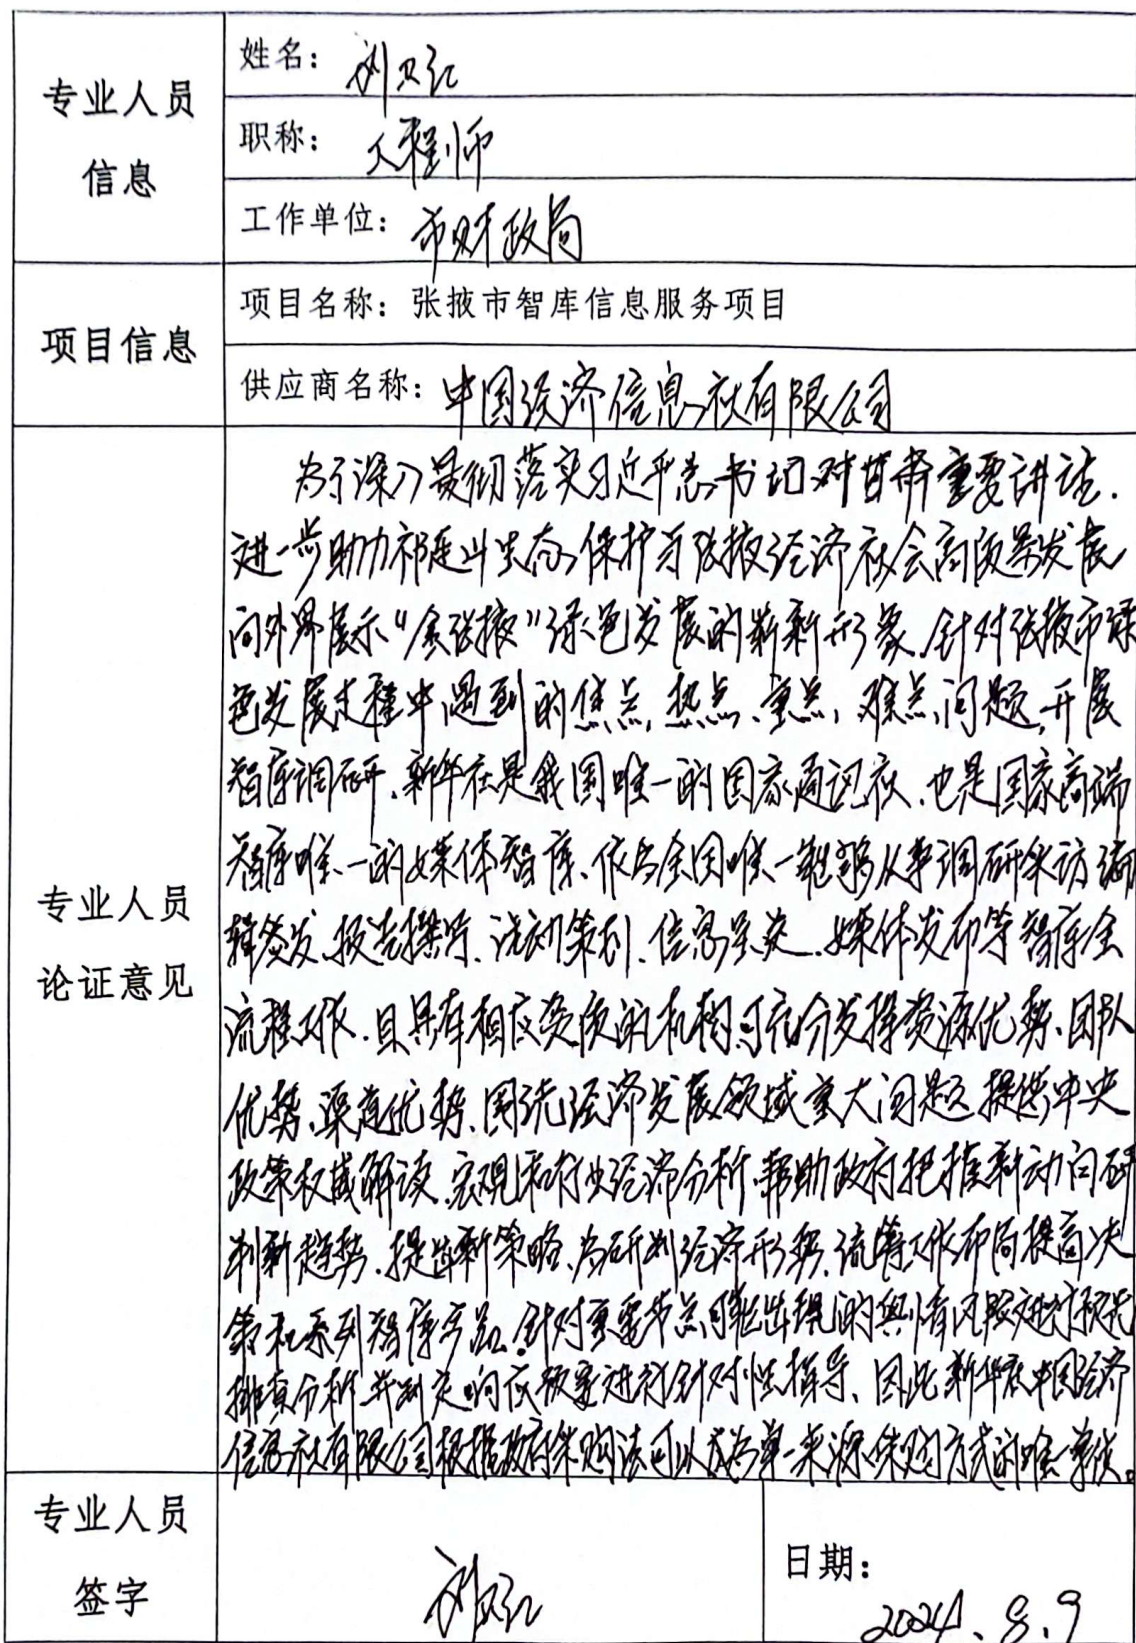 专业人员
信息
姓名：刘卫红
职称：工程师
工作单位：市财政局
项目信息
项目名称：张掖市智库信息服务项目
供应商名称：中国经济信息社有限公司
专业人员
论证意见
为了深入贯彻落实习近平总书记对甘肃重要讲话.
进一步助力祁连山生态保护与张掖经济社会高质量发展
向外界展示“金张掖”绿色发展的崭新形象.针对张掖市绿
色发展过程中遇到的焦点、热点、重点、难点问题,开展
智库调研.新华社是我国唯一的国家通讯社、也是国家高端
智库唯一的媒体智库、作为全国唯一能够从事调研采访编
辑签发、报告撰写、活动策划、信息呈送、媒体发布等智库全
流程工作.且具有相应资质的机构可充分发挥资源优势、团队
优势、渠道优势、围绕经济发展领域重大问题提供中央
政策权威解读、宏观和行业经济分析、帮助政府把握新动向研
判新趋势、提出新策略、为研判经济形势、统筹工作布局提高决
策和系列智库产品.针对重要节点可能出现的舆情风险进行预先
排查分析并制定响应预案进行针对性指导、因此新华社中国经济
信息社有限公司根据政府采购法可以成为单一来源采购方式的唯一单位。
专业人员
签字
刘卫红
日期：
2024.8.9